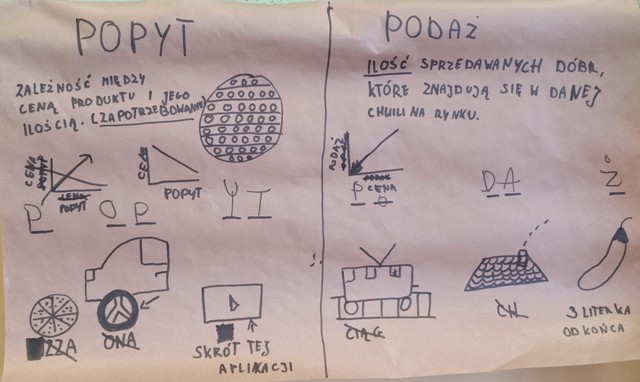 POPYT
ZALEŻNOŚĆ MIĘDZY
CENĄ PRODUKTU I JEGO
ILOŚCIĄ. (ZAPOTRZEBOWANIE)
CENA
POPYT
CENA
POPYT
P O P YT
ZZA
ONA
SKRÓT TEJ
APLIKACJI
PODAŻ
ILOŚĆ SPRZEDAWANYCH DÓBR,
KTÓRE ZNAJDUJĄ SIĘ W DANEJ
CHWILI NA RYNKU.
PODAŻ
CENA
P O DA Ż
CIĄG
CH
3 LITERKA
OD KOŃCA